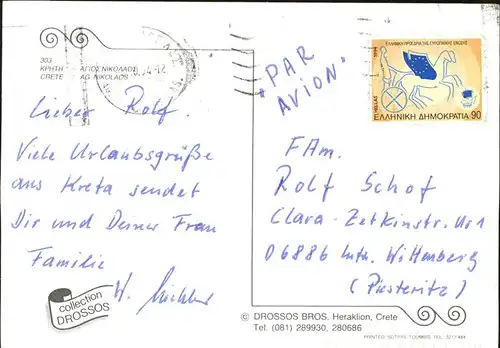 303
ΚΡΗΤΗ ΑΓΙΟΣ ΝΙΚΟΛΑΟΣ
CRETE AG NIKOLAOS
Lieber Rolf.
Viele Urlaubsgrüße
aus Kreta sendet
Dir und Deiner Frau
Familie
W.
collection
DROSSOS
"PAR
AVION"
ΕΛΛΗΝΙΚΗ ΠΡΟΕΔΡΙΑ ΤΗΣ ΕΥΡΩΠΑΪΚΗΣ ΕΝΩΣΗΣ
1994
HELLAS
ΕΛΛΗΝΙΚΗ ΔΗΜΟΚΡΑΤΙΑ 90
FAm.
Rolf Schof
Clara-Zetkinstr. Nr 1
06886 Luth. Wittenberg
(Piesteritz)
© DROSSOS BROS. Heraklion, Crete
Tel. (081) 289930, 280686